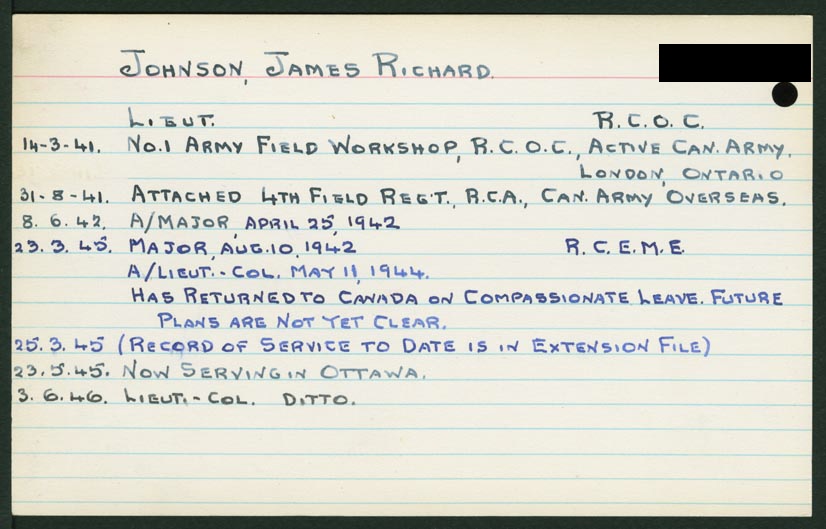 JOHNSON, JAMES RICHARD.
LIEUT. R.C.O.C.
14-3-41. NO.1 ARMY FIELD WORKSHOP, R.C.O.C., ACTIVE CAN. ARMY.
LONDON, ONTARIO
31-8-41. ATTACHED 4TH FIELD REG'T., R.C.A., CAN. ARMY OVERSEAS.
8.6.42. A/MAJOR, APRIL 25, 1942
23.3.45. MAJOR, AUG.10, 1942 R.C.E.M.E.
A/LIEUT.-COL. MAY 11, 1944.
HAS RETURNED TO CANADA ON COMPASSIONATE LEAVE. FUTURE
PLANS ARE NOT YET CLEAR.
25.3.45 (RECORD OF SERVICE TO DATE IS IN EXTENSION FILE)
23.5.45. NOW SERVING IN OTTAWA.
3.6.46. LIEUT.-COL. DITTO.